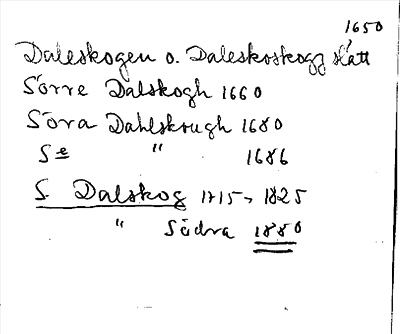 1650
Daleskogen o. Daleskoskogg slätt
Sörre Dalskogh 1660
Söra Dahlskough 1680
Se " 1686
S. Dalskog 1715, 1825
" Södra 1880